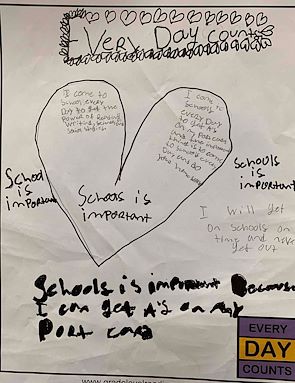 Every Day Counts
I come to
School every
Day to get the
Power of Reading
Writing, Science and
Social Studies
I come
School is
every Day
to get A's
on my Port card
to School every
Day and do
School
is
important
Schools is
important
Schools
is
important
I will get
on Schools on
time and
get out
Schools is important Because
I can get A's on my
Port card
EVERY
DAY
COUNTS